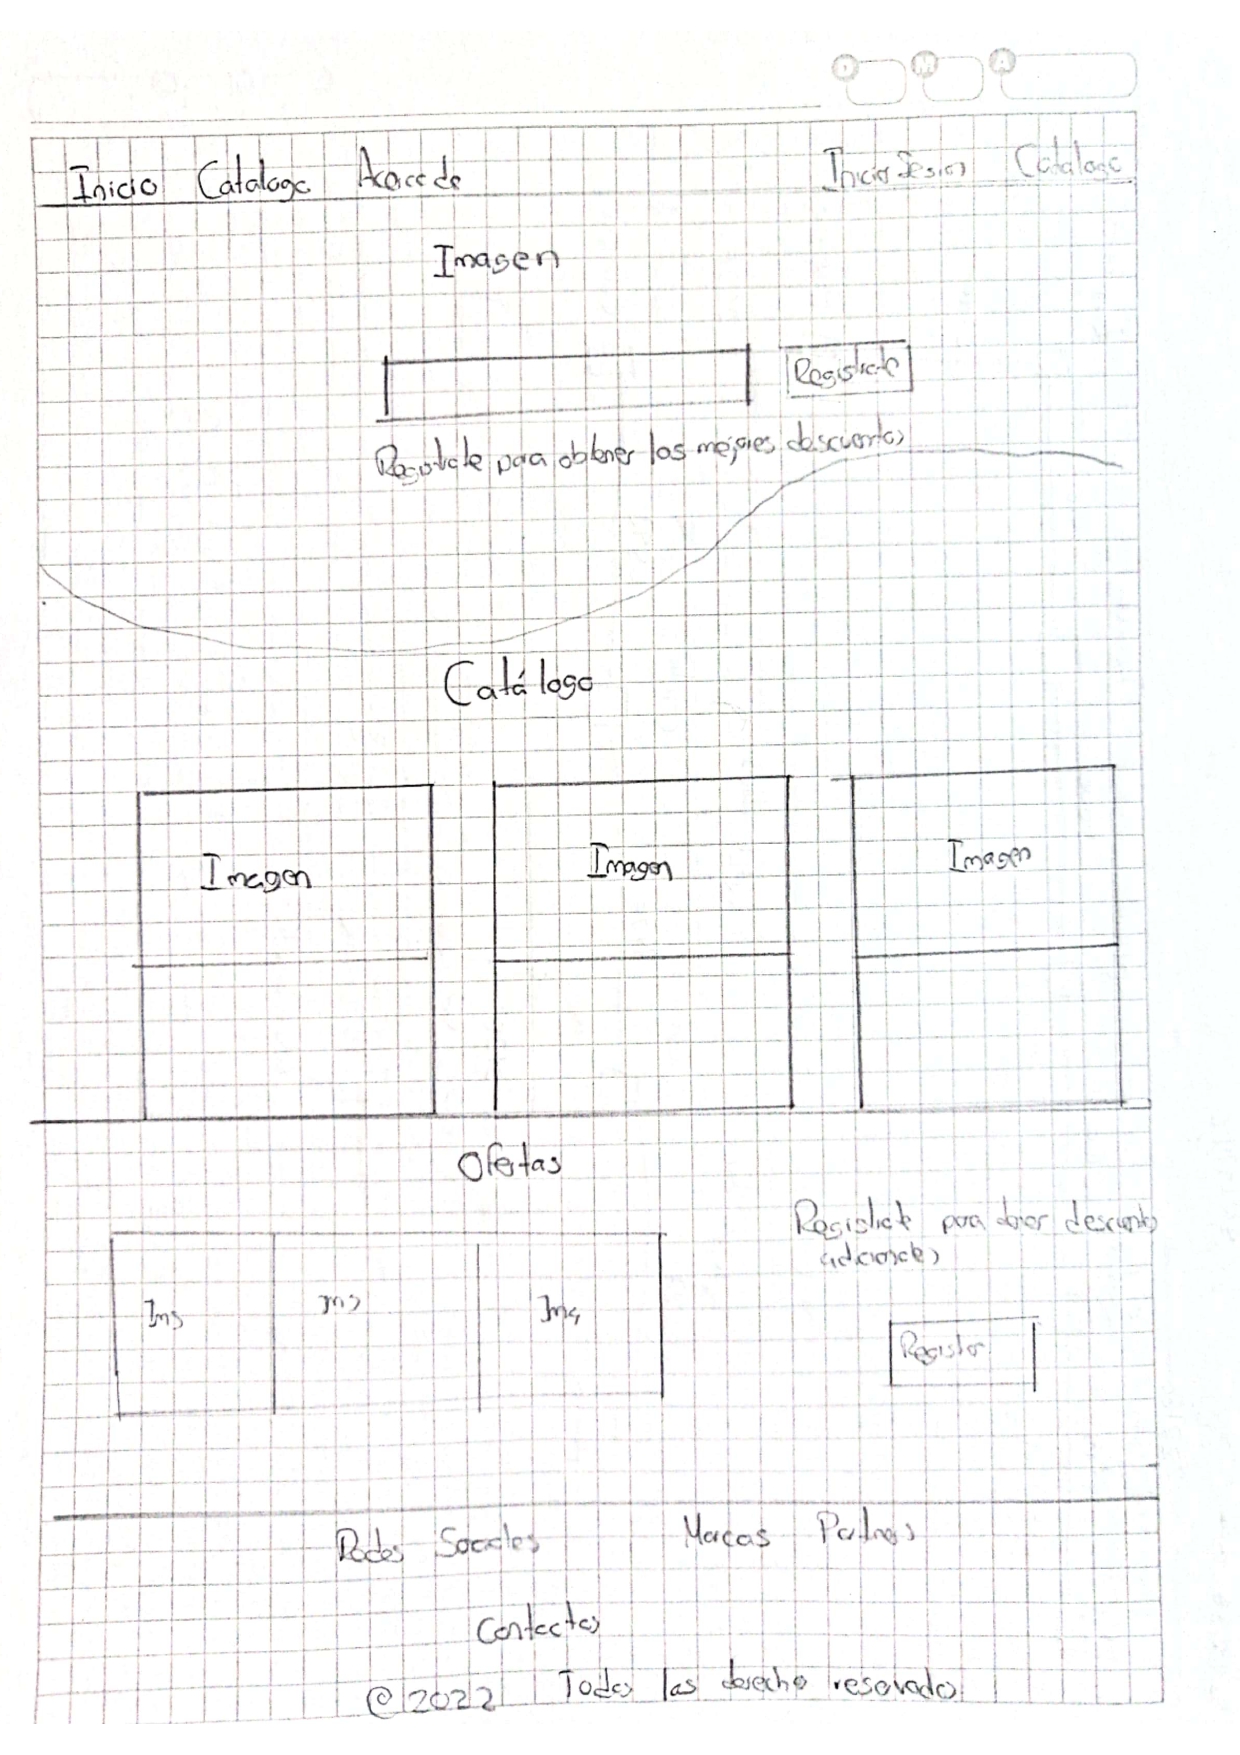 Inicio Catalogo Acerca de Inicio Sesion Catalogo
Imagen
Registrate
Registrate para obtener los mejores descuentos
Catálogo
Imagen Imagen Imagen
Ofertas
Registrate para obtener descuentos
adicionales
Img Img Img
Registrar
Redes Sociales Marcas Partners
Contactos
© 2022 Todos las derecho reservado